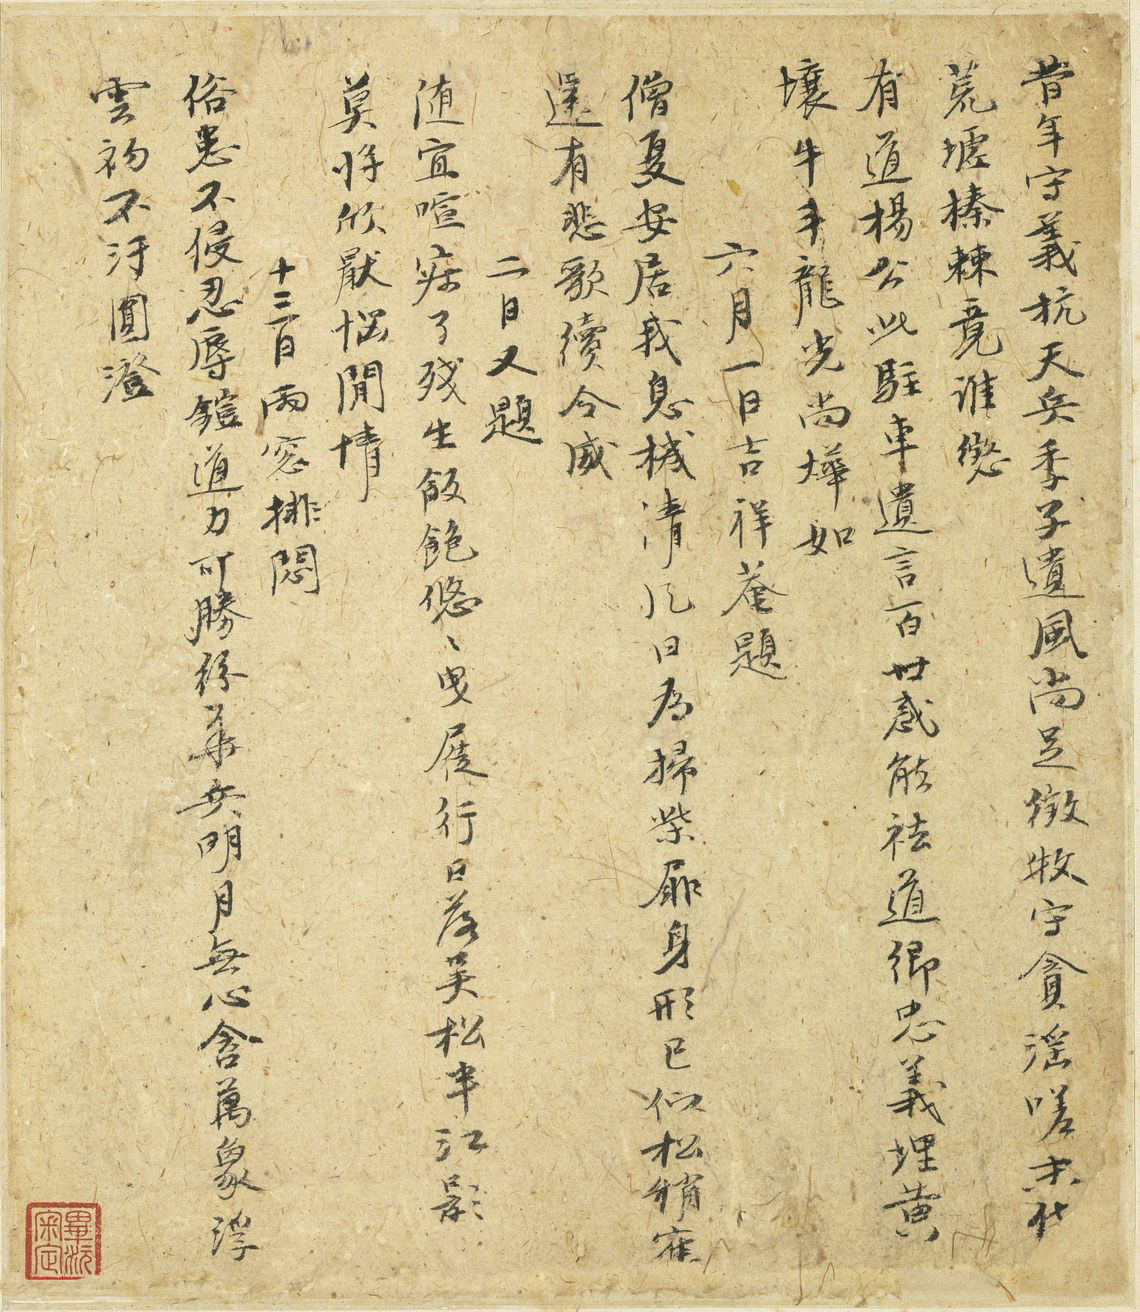 昔年守義抗天兵季子遺風尚足徵牧守貪滛嗟末代
荒墟榛棘竟誰懲
有道楊公此駐車遺言百世感能祛道卿忠義埋黃
壤牛斗龍光尚燁如
六月一日吉祥菴題
僧夏安居我息機清風日為掃柴扉身形已似松梢
遥有悲歌續令威
二日又題
随宜喧寂了殘生飯飽悠〻曳屐行日落吴松半江影
莫將欣厭惱閒情
十三日雨窓排悶
俗患不侵忍辱鎧道力可勝紛華兵明月無心含萬象浮
雲初不汙圓澄
畢沅審定